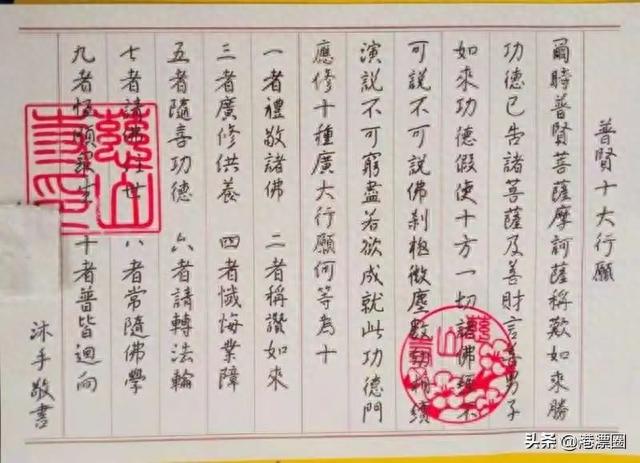 普賢十大行願
爾時普賢菩薩摩訶薩稱歎如來勝
功德已告諸菩薩及善財言善男子
如來功德假使十方一切諸佛經不
可說不可說佛剎極微塵數劫相續
演說不可窮盡若欲成就此功德門
應修十種廣大行願何等為十
一者禮敬諸佛 二者稱讚如來
三者廣修供養 四者懺悔業障
五者隨喜功德 六者請轉法輪
七者請佛住世 八者常隨佛學
九者恆順眾生 十者普皆迴向
沐手敬書
头条 @港漂圈